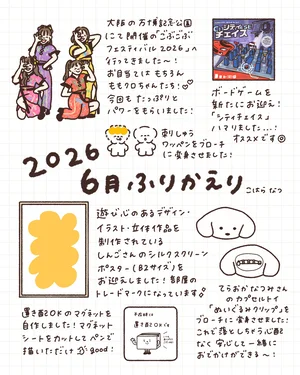 大阪の万博記念公園
にて開催の「ごぶごぶ
フェスティバル2026」へ
行ってきました〜!
お目当ては もちろん
ももクロちゃんたち!♡
今回も たっぷりと
パワーをもらいました!
シティチェイス
ボードゲームを
新たにお迎え!
「シティチェイス」
ハマりました...!
オススメです◎
刺しゅう
ワッペンをブローチ
に変身させました!
2026
6月ふりかえり
こはら なつ
遊び心のあるデザイン・
イラスト・立体作品を
制作されている
しんごさんのシルクスクリーン
ポスター(B2サイズ)を
お迎えしました!部屋の
トレードマークになっています!
置き配OKのマグネットを
自作しました!マグネット
シートをカットしてペンで
描いただけ good!
置き配OKです
てらおかなつみさん
のカプセルトイ
「ぬいぐるみクリップ」を
ブローチに変身させました!
これで落としちゃう心配
なく 安心して一緒に
おでかけができる〜!